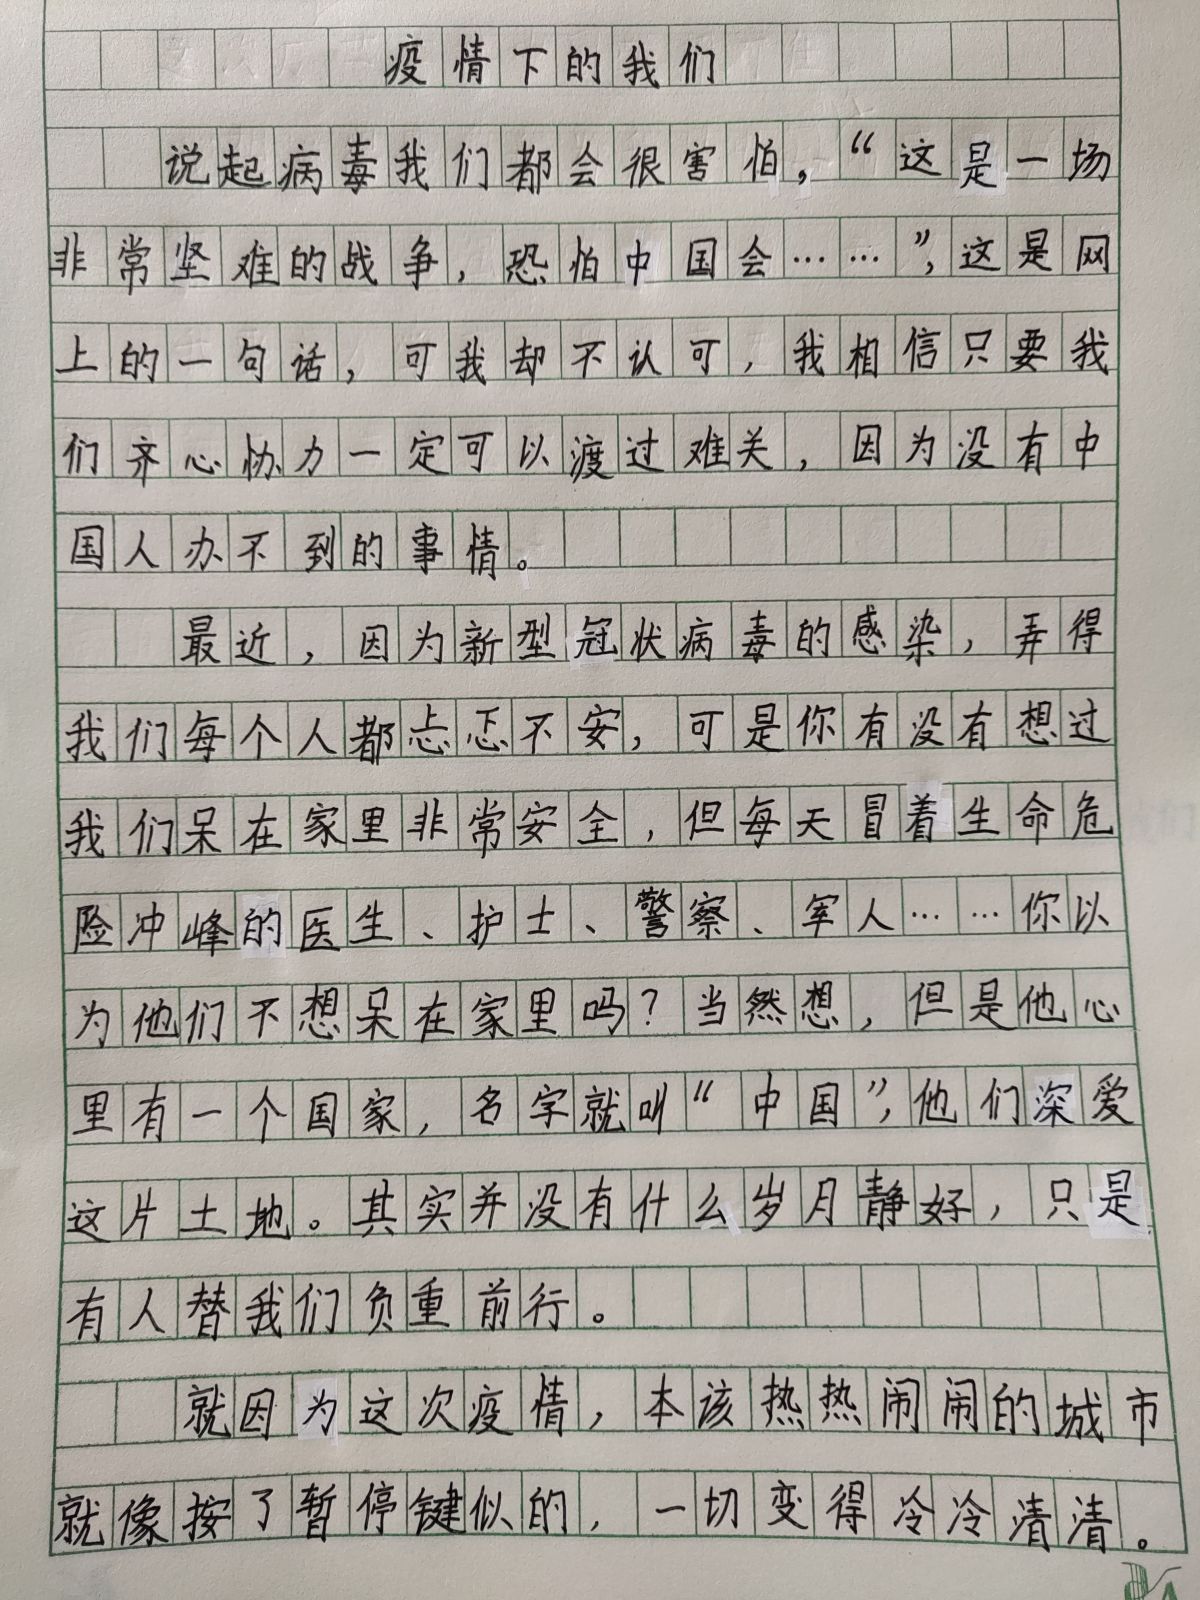 疫情下的我们
说起病毒我们都会很害怕，“这是一场
非常坚难的战争，恐怕中国会……”，这是网
上的一句话，可我却不认可，我相信只要我
们齐心协力一定可以渡过难关，因为没有中
国人办不到的事情。
最近，因为新型冠状病毒的感染，弄得
我们每个人都忐忑不安，可是你有没有想过
我们呆在家里非常安全，但每天冒着生命危
险冲峰的医生、护士、警察、军人……你以
为他们不想呆在家里吗？当然想，但是他心
里有一个国家，名字就叫“中国”，他们深爱
这片土地。其实并没有什么岁月静好，只是
有人替我们负重前行。
就因为这次疫情，本该热热闹闹的城市
就像按了暂停键似的，一切变得冷冷清清。